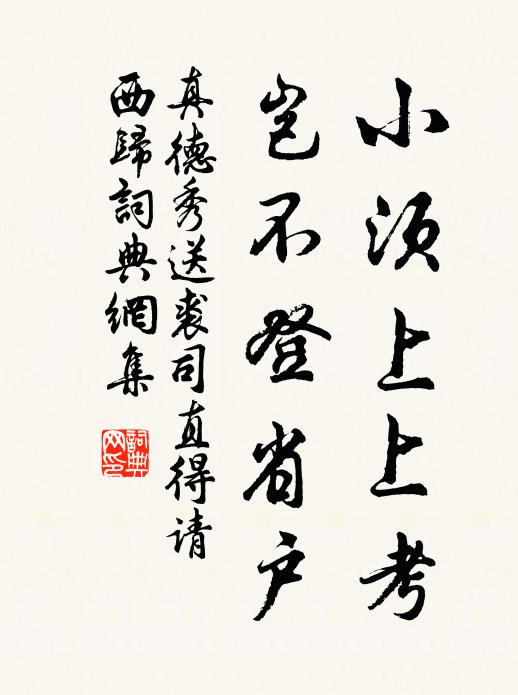 小须上上考
岂不登省户
真德秀送裘司直得请
西歸詞典網集
詞典
网印